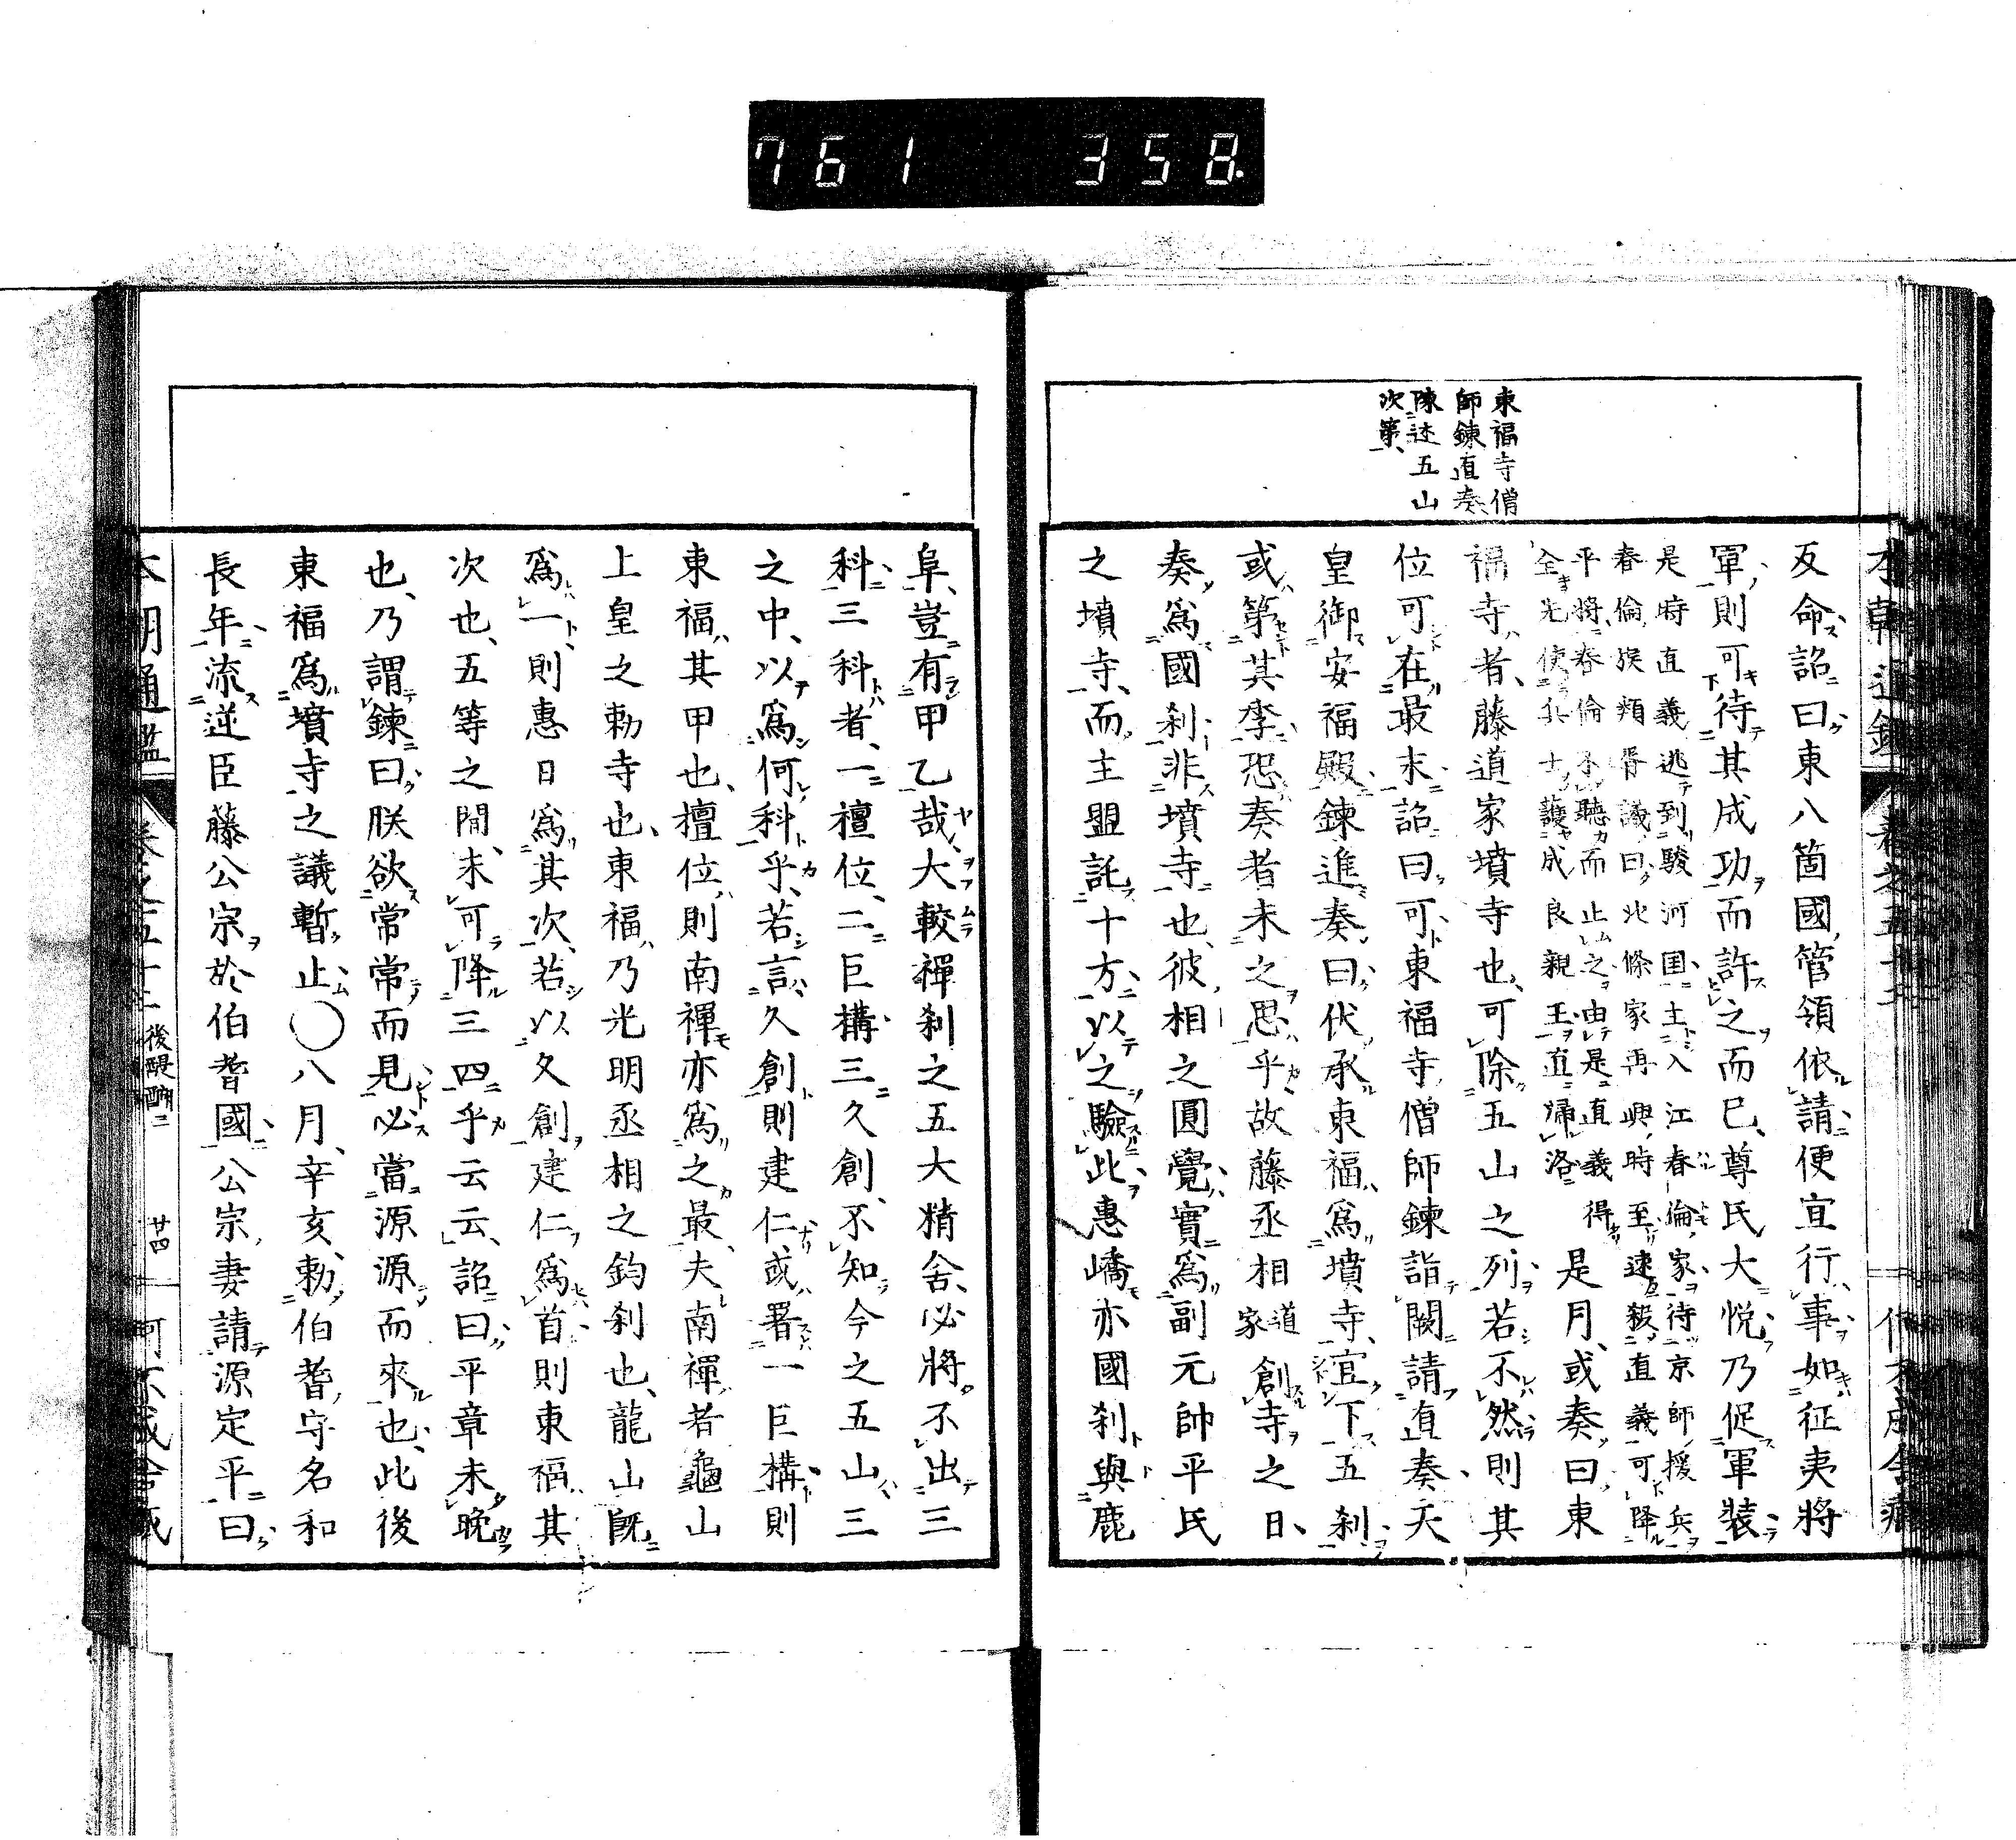 761 358.
東福寺僧
師鍊直奏
陳述五山
次第
反命詔曰東八箇國管領依請便宜行事如征夷將
軍則可待其成功而許之而已尊氏大悅乃促軍裝
是時直義逃到駿河国土入江春倫家待京師援兵
春倫族類胥議曰北條家再興時至速殺直義可降
平將春倫不聽而止之由是直義得
全先使兵士護成良親王直歸洛
是月或奏曰東
福寺者藤道家墳寺也可除五山之列若不然則其
位可在最末詔曰可東福寺僧師鍊詣闕請直奏天
皇御安福殿鍊進奏曰伏承東福爲墳寺宜下五刹
或第其季恐奏者未之思乎故藤丞相道家創寺之日
奏爲國刹非墳寺也彼相之圓覺實爲副元帥平氏
之墳寺而主盟託十方以之驗此惠嶠亦國刹與鹿
阜豈有甲乙哉大較禪刹之五大精舍必將不出三
科三科者一檀位二巨構三久創不知今之五山三
之中以爲何科乎若言久創則建仁或署一巨構則
東福其甲也檀位則南禪亦爲之最夫南禪者龜山
上皇之勅寺也東福乃光明丞相之鈞刹也龍山既
爲一則惠日爲其次若以久創建仁爲首則東福其
次也五等之間未可降三四乎云云詔曰平章未晚
也乃謂鍊曰朕欲常常而見必當源源而來也此後
東福爲墳寺之議暫止〇八月辛亥勅伯耆守名和
長年流逆臣藤公宗於伯耆國公宗妻請源定平曰
本朝通鑑 卷之五十二 後醍醐二 廿四